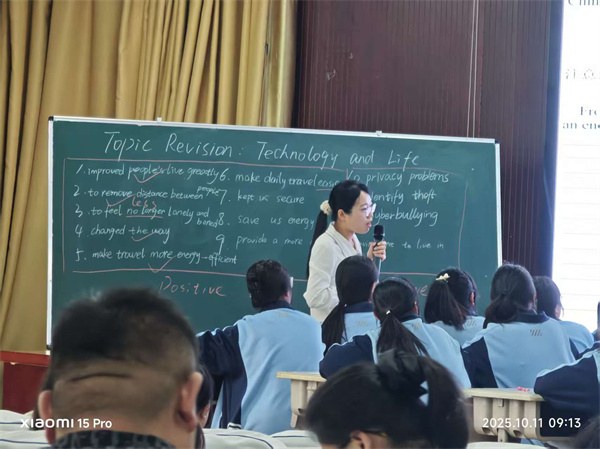 Topic Revision: Technology and Life
1. improved people's live greatly
2. to remove distance between people
3. to feel no longer lonely and bored
4. changed the way
5. make travel more energy-efficient
6. make daily travel easi
7. kept us secure
8. save us energy
9. provide a more
privacy problems
identify theft
cyberbullying
to live in
Positive
xiaomi 15 Pro
2025.10.11 09:13
Fro
an en